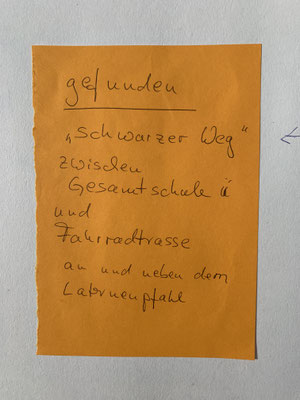 gefunden
„Schwarzer Weg"
zwischen
Gesamtschule ü
und
Fahrradtrasse
an und neben dem
Laternenpfahl